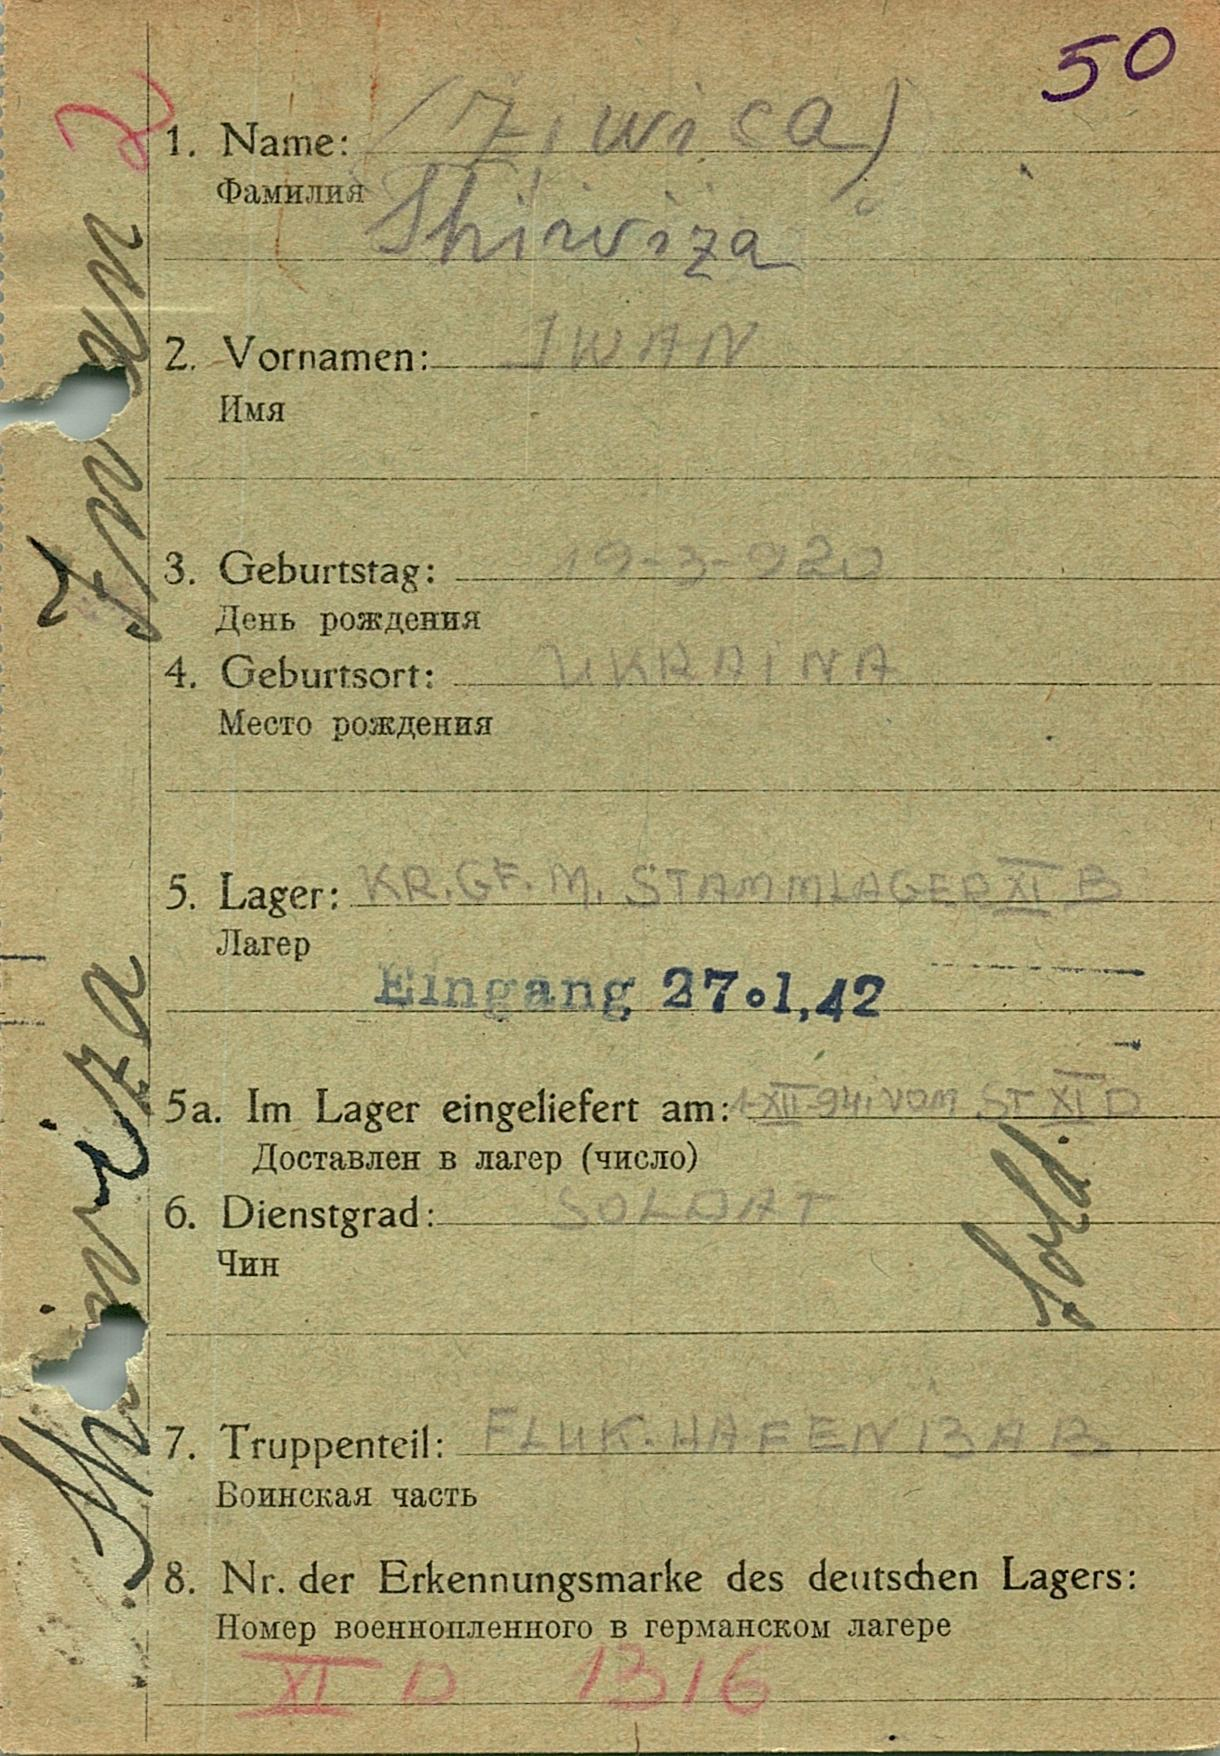 50
2
1. Name: (Ziwica)
Фамилия
Shiwiza
2. Vornamen: IWAN
Имя
3. Geburtstag: 19-3-920
День рождения
4. Geburtsort: UKRAINA
Место рождения
5. Lager: KR.GF.M.STAMMLAGER XI B
Лагер
Eingang 27.1.42
5a. Im Lager eingeliefert am: 1-XII-941 VOM ST XI D
Доставлен в лагер (число)
6. Dienstgrad: SOLDAT
Чин
Sold.
7. Truppenteil:
Воинская часть
8. Nr. der Erkennungsmarke des deutschen Lagers:
Номер военнопленного в германском лагере
XI D 1316
Shiwiza Iwan